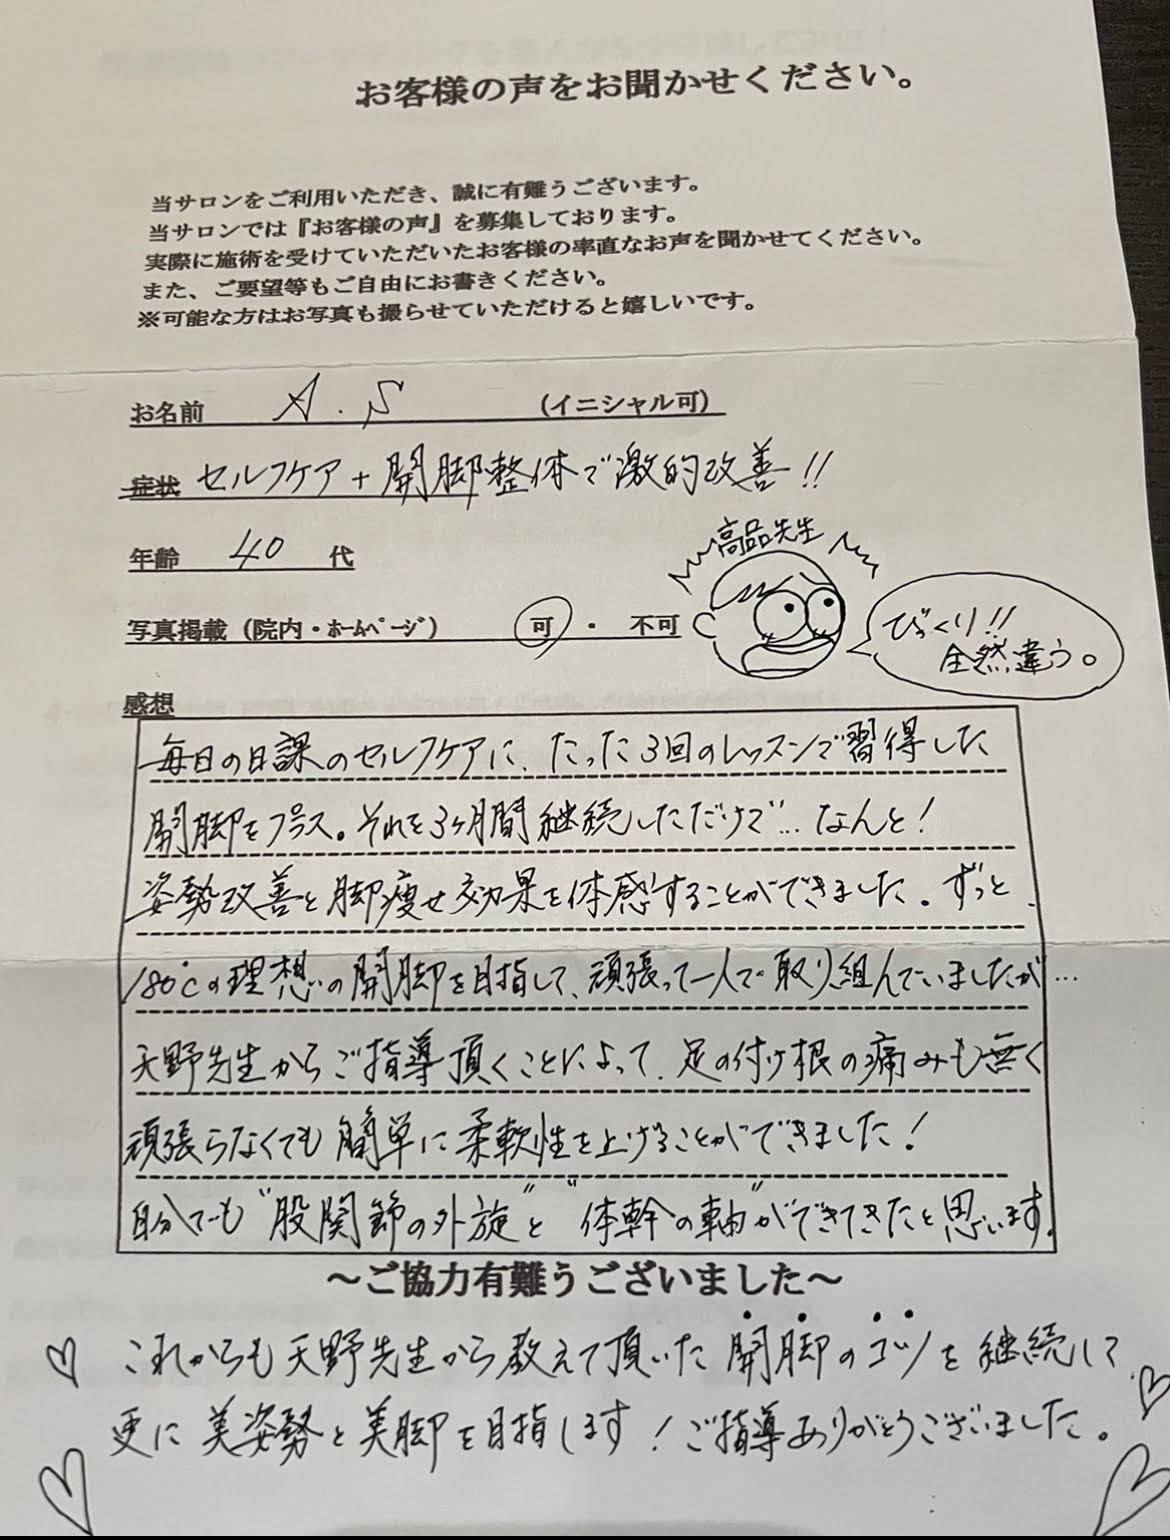 お客様の声をお聞かせください。
当サロンをご利用いただき、誠に有難うございます。
当サロンでは『お客様の声』を募集しております。
実際に施術を受けていただいたお客様の率直なお声を聞かせてください。
また、ご要望等もご自由にお書きください。
※可能な方はお写真も撮らせていただけると嬉しいです。
お名前 A.S (イニシャル可)
症状 セルフケア+開脚整体で激的改善!!
年齢 40 代
高品先生
写真掲載(院内・ホームページ) 可 ・ 不可
びっくり!!
全然違う。
感想
毎日の日課のセルフケアに、たった3回のレッスンで習得した
開脚をプラス。それを3ヶ月間継続しただけで…なんと!
姿勢改善と脚痩せ効果を体感することができました。ずっと、
180℃の理想の開脚を目指して、頑張って一人で取り組んでいましたが…
天野先生からご指導頂くことによって、足の付け根の痛みも無く
頑張らなくても簡単に柔軟性を上げることができました!
自分でも"股関節の外旋"と"体幹の軸"ができてきたと思います。
～ご協力有難うございました～
♡ これからも天野先生から教えて頂いた開脚のコツを継続して
更に美姿勢と美脚を目指します!ご指導ありがとうございました。